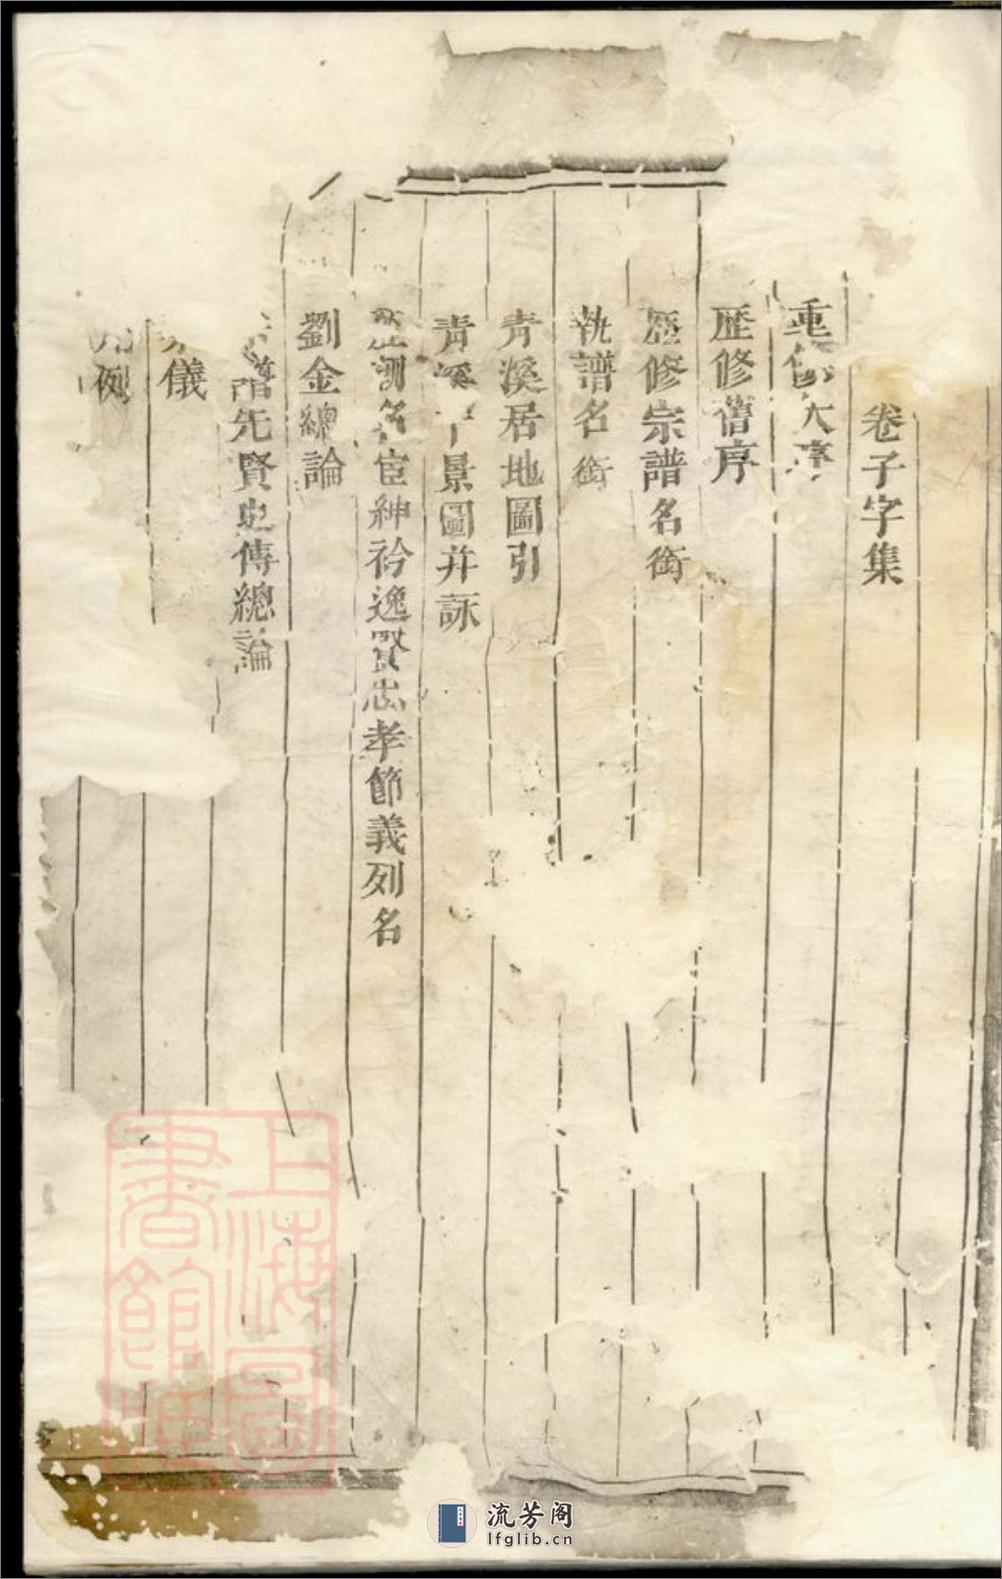 卷子字集
重修大序
歷修舊序
歷修宗譜名銜
執譜名銜
青溪居地圖引
青溪十景圖并詠
歷朝名宦紳衿逸賢忠孝節義列名
劉金總論
先賢史傳總論
儀
凡例
上海圖書館藏
流芳阁
lfglib.cn